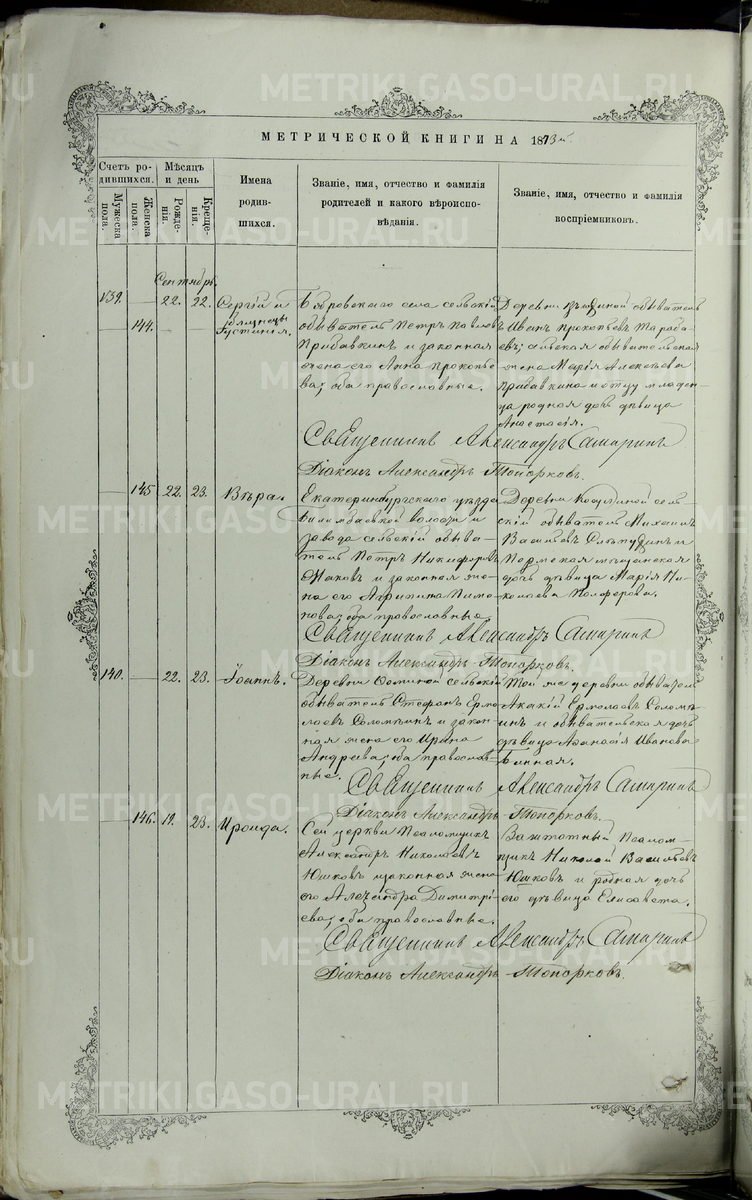 МЕТРИЧЕСКОЙ КНИГИ НА 1873 г.
Счетъ родившихся.
Мужеска пола.
Женска пола.
Мѣсяцъ и день
Рожденія.
Крещенія.
Имена родившихся.
Званіе, имя, отчество и фамилія родителей и какого вѣроисповѣданія.
Званіе, имя, отчество и фамилія воспріемниковъ.
Сентябрь
139. — 22. 22. Сергій и
близнецы
— 144. — — Іустинія.
села сельскій
обыватель Петръ Павловъ
Прибавкинъ и законная
жена его Анна Прокопье-
ва; оба православные.
Деревни обыватель
Иванъ Прокопьевъ Тараба-
евъ; сельская обывательская
жена Марія Алексѣева
Прибавкина и отцу младен-
ца родная дочь дѣвица
Анастасія.
Священникъ Александръ Самаринъ
Діаконъ Александръ Топорковъ.
— 145 22. 23. Вѣра.
Екатеринбургскаго уѣзда
Билимбаевской волости и
завода сельскій обыва-
тель Петръ Никифоровъ
Маховъ и законная же-
на его Агрипина Пимо-
нова; оба православные.
Деревни сель-
скій обыватель Михаилъ
Васильевъ и
Пермская мѣщанская
дочь дѣвица Марія Ни-
колаева Панферова.
Священникъ Александръ Самаринъ
Діаконъ Александръ Топорковъ.
140. — 22. 23. Іоаннъ.
Деревни сельскій
обыватель Стефанъ Ермо-
лаевъ Соломѣинъ и закон-
ная жена его Ирина
Андреева; оба православ-
ные.
Той же деревни обыватель
Акакій Ермолаевъ Соломѣ-
инъ и обывательская дочь
дѣвица Афанасія Иванова
Священникъ Александръ Самаринъ
Діаконъ Александръ Топорковъ.
— 146. 19. 23. Ираида.
Сей церкви Псаломщикъ
Александръ Николаевъ
Юшковъ и законная жена
его Александра Димитрі-
ева; оба православные.
Заштатный Псалом-
щикъ Николай Васильевъ
Юшковъ и родная дочь
его дѣвица Елисавета.
Священникъ Александръ Самаринъ
Діаконъ Александръ Топорковъ.
METRIKI.GASO-URAL.RU